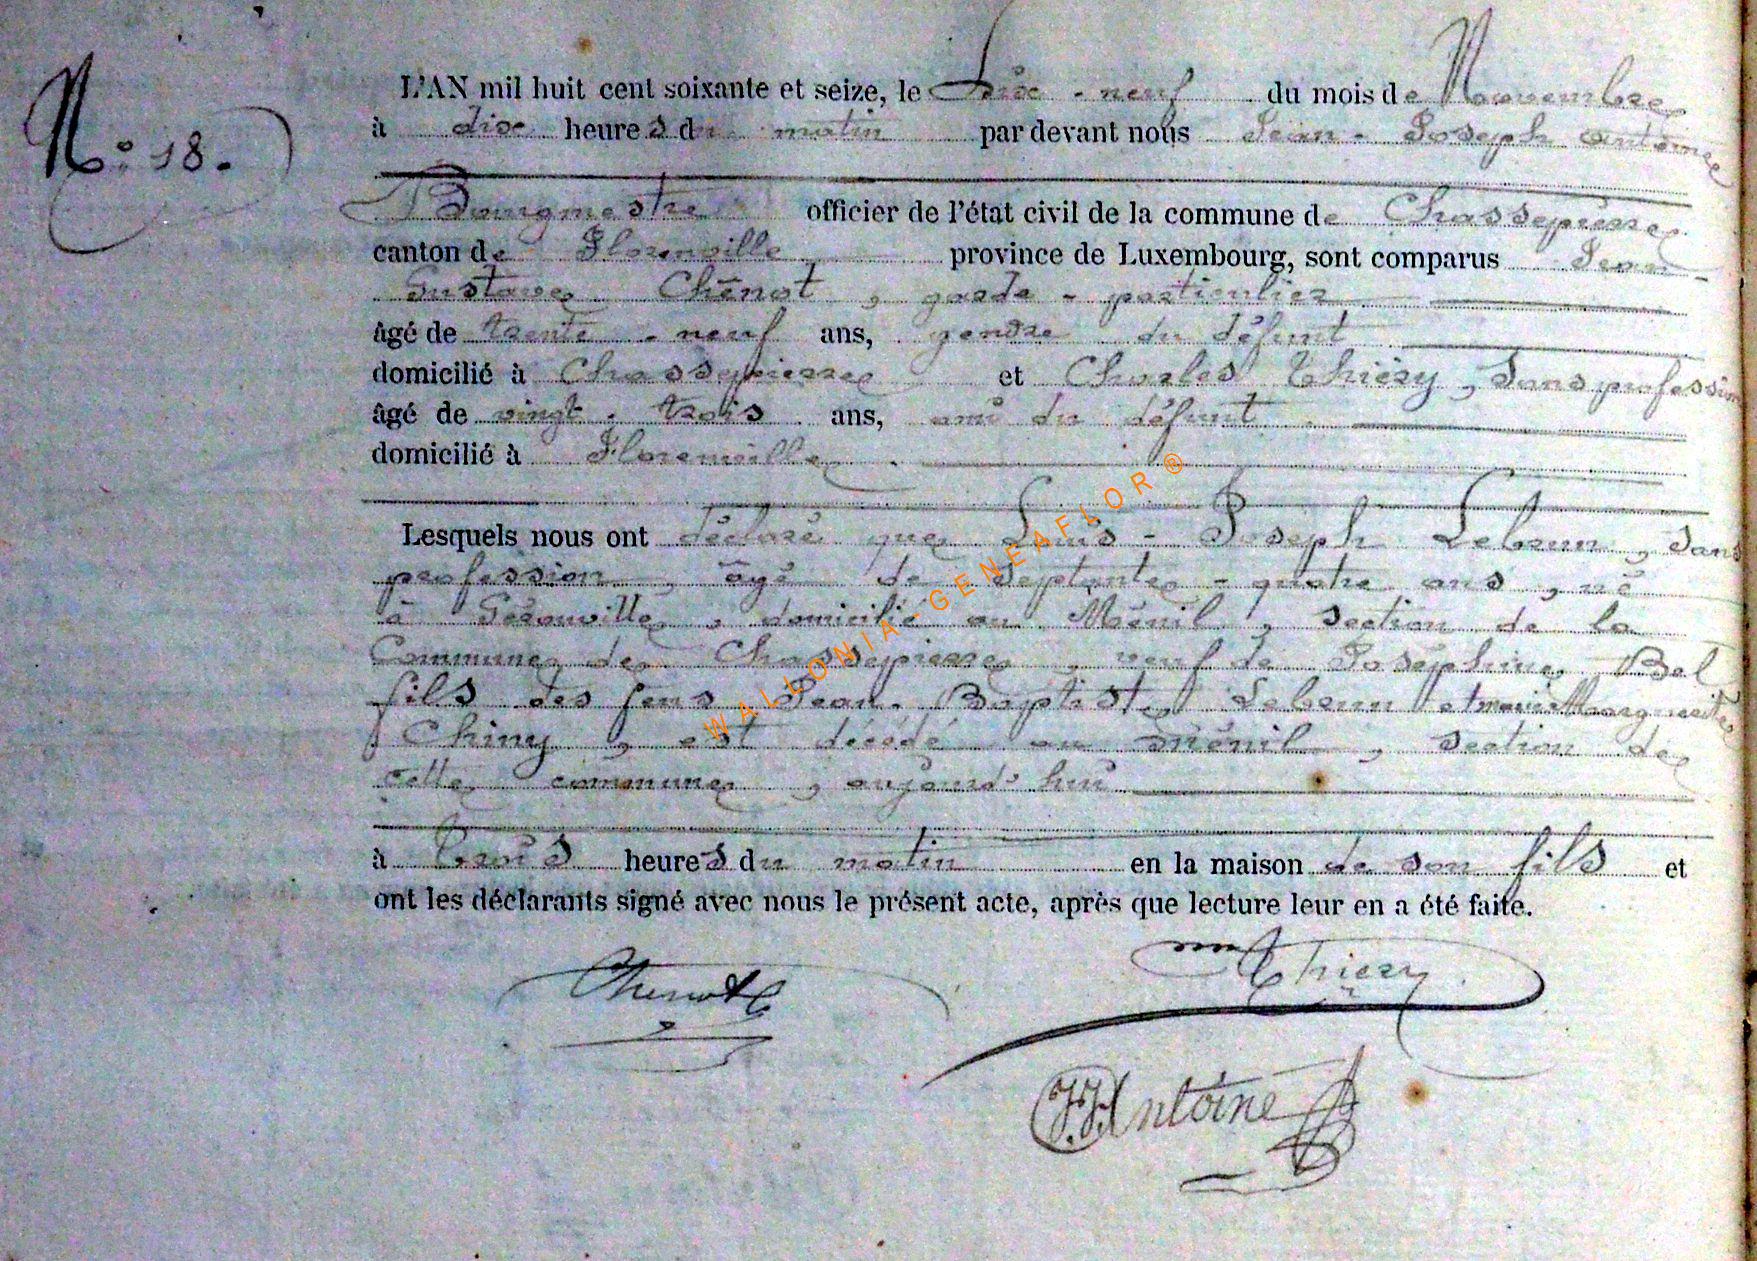 N.° 18.
L'AN mil huit cent soixante et seize, le Dix-neuf du mois de Novembre
à dix heures du matin par devant nous Jean-Joseph Antoine
Bourgmestre officier de l'état civil de la commune de Chassepierre
canton de Florenville province de Luxembourg, sont comparus Jean-
Gustave Chénot, garde-particulier
âgé de trente-neuf ans, gendre du défunt
domicilié à Chassepierre et Charles Thiéry, sans profession
âgé de vingt-trois ans, ami du défunt.
domicilié à Florenville.
Lesquels nous ont déclaré que Louis-Joseph Lebrun, sans
profession, âgé de septante-quatre ans, né
à Gérouville, domicilié au Ménil, section de la
Commune de Chassepierre, veuf de Joséphine Bel
fils des feus Jean-Baptiste Lebrun et marie Marguerite
Chiny, est décédé au Ménil, section de
cette commune, aujourd'hui
à trois heures du matin en la maison de son fils et
ont les déclarants signé avec nous le présent acte, après que lecture leur en a été faite.
Chenot Thiery
J.J. Antoine
WALLONIA-GENEAFLOR®